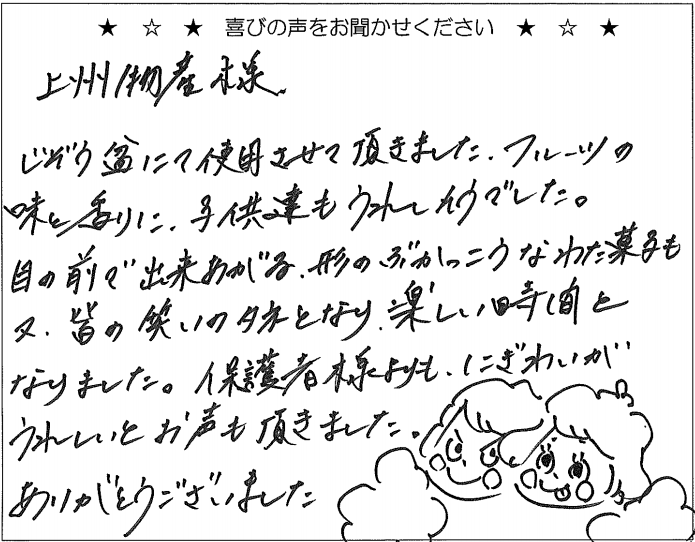 ★ ☆ ★ 喜びの声をお聞かせください ★ ☆ ★
上州物産様
じぞう盆にて使用させて頂きました。フルーツの
味と香りに、子供達もうれしそうでした。
目の前で出来あがる、形のぶかっこうなわた菓子も
又、皆の笑いのタネとなり、楽しい時間と
なりました。保護者様よりも、にぎわいが
うれしいとお声も頂きました。
ありがとうございました